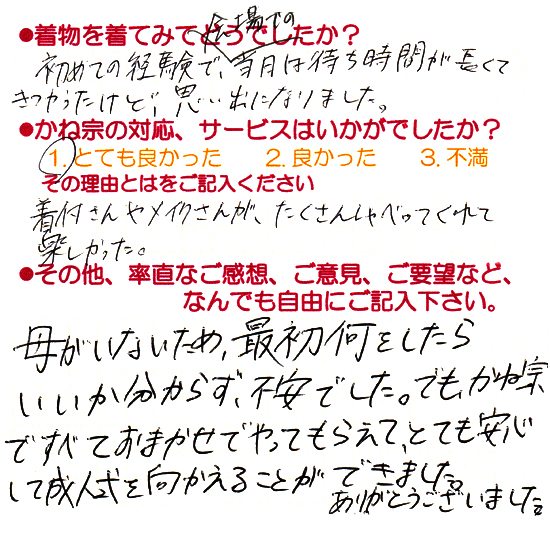 会場での
●着物を着てみてどうでしたか？
初めての経験で、当月は待ち時間が長くて
きつかったけど、思い出になりました。
●かね宗の対応、サービスはいかがでしたか？
1.とても良かった 2.良かった 3.不満
その理由とはをご記入ください
着付さんやメイクさんが、たくさんしゃべってくれて
楽しかった。
●その他、率直なご感想、ご意見、ご要望など、
なんでも自由にご記入下さい。
母がいないため、最初何をしたら
いいか分からず、不安でした。でも、かね宗
ですべておまかせでやってもらえて、とても安心
して成人式を向かえることができました。
ありがとうございました。